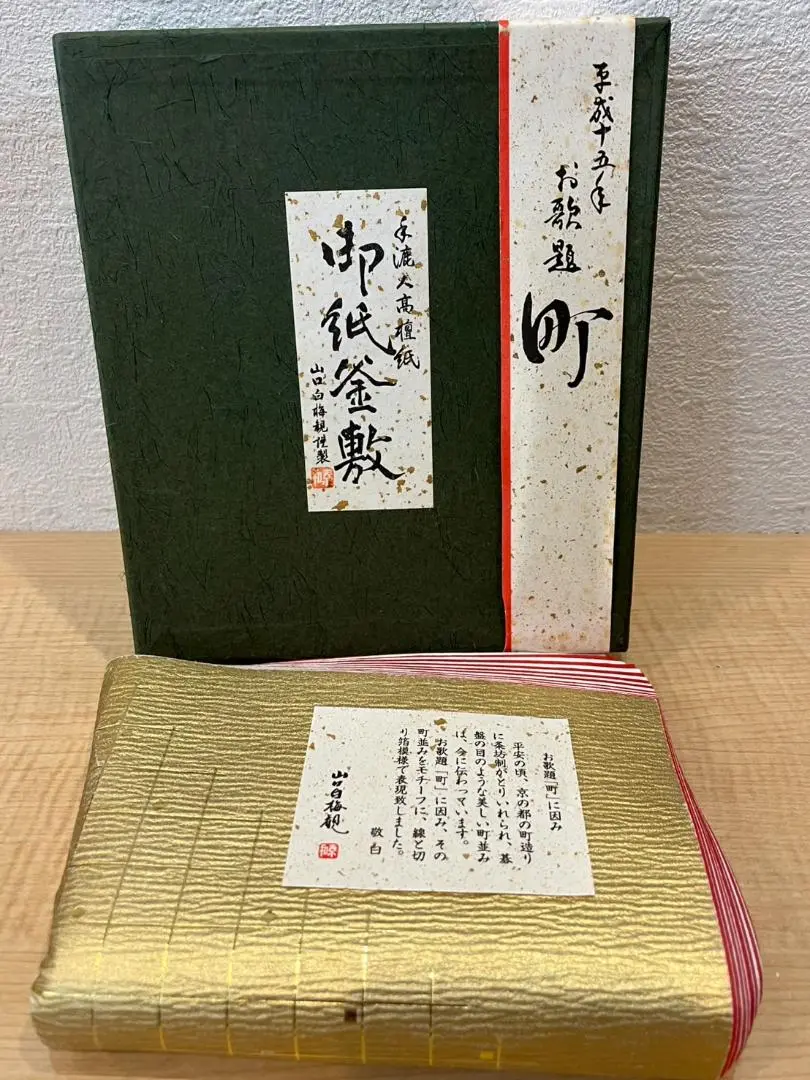 平成十五年
お歌題
町
手漉大高檀紙
御紙釜敷
山口白梅観謹製
お歌題「町」に因み
平安の頃、京の都の町造り
に条坊制がとりいれられ、碁
盤の目のような美しい町並み
は、今に伝わっています。
お歌題「町」に因み、その
町並みをモチーフに、線と切
り箔模様で表現致しました。
敬白
山口白梅観